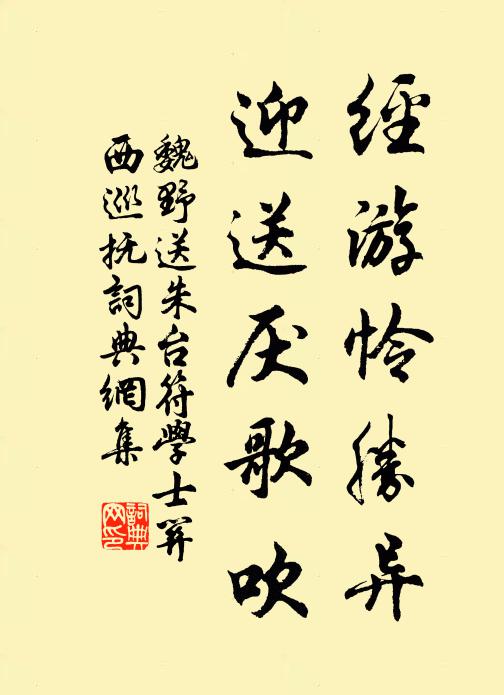 經游怜勝异
迎送厌歌吹
魏野送朱台符學士关
西巡抚詞典網集
詞典
网印